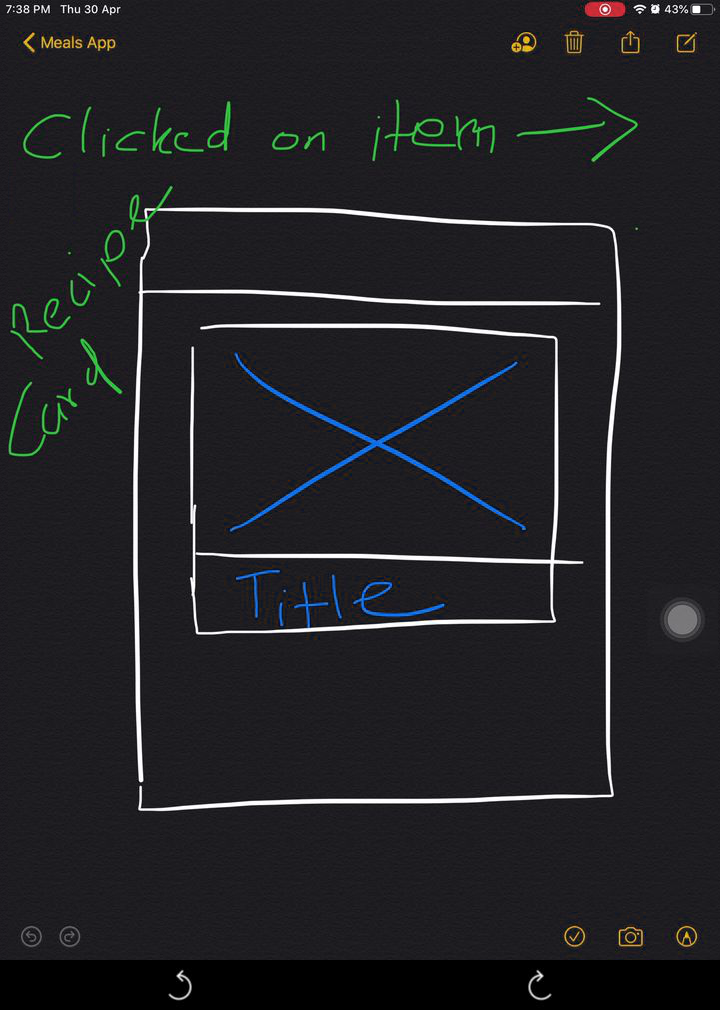 7:38 PM Thu 30 Apr 43%
Meals App
Clicked on item
Recipe
Card
Title